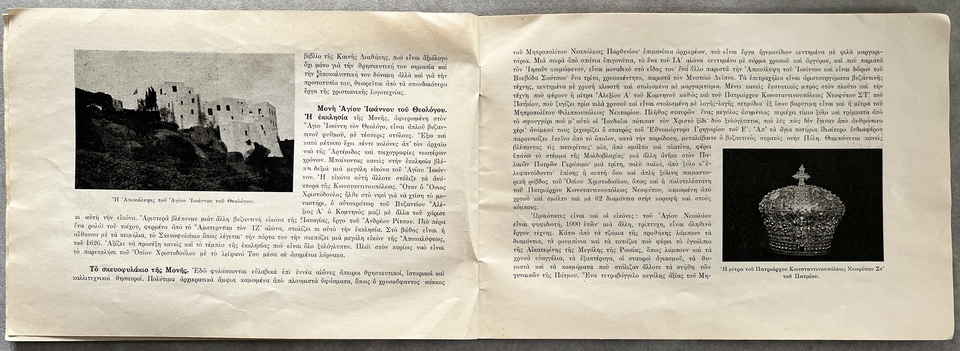 βιβλίο τῆς Καινῆς Διαθήκης, ποὺ εἶναι ἀξιόλογο
ὄχι μόνο γιὰ τὴν θρησκευτική του σημασία καὶ
τὴν ἀποκαλυπτική του δύναμη ἀλλὰ καὶ γιὰ τὴν
πρωτοτυπία του, θεωρεῖται ἀπὸ τὰ σπουδαιότερα
ἔργα τῆς χριστιανικῆς λογοτεχνίας.
Μονὴ Ἁγίου Ἰωάννου τοῦ Θεολόγου.
Ἡ ἐκκλησία τῆς Μονῆς, ἀφιερωμένη στὸν
Ἅγιο Ἰωάννη τὸν Θεολόγο, εἶναι ἁπλοῦ βυζαν-
τινοῦ ρυθμοῦ, μὲ τέσσερις στύλους. Ἔξω καὶ
κατὰ μέτωπο ἔχει πέντε κολόνες ἀπ' τὸν ἀρχαῖο
ναὸ τῆς Ἀρτέμιδος καὶ τοιχογραφίες νεωτέρων
χρόνων. Μπαίνοντας κανεὶς στὴν ἐκκλησία βλέ-
πει δεξιὰ μιὰ μεγάλη εἰκόνα τοῦ Ἁγίου Ἰωάν-
νου. Ἡ εἰκόνα αὐτὴ ἄλλοτε στόλιζε τὰ ἀνά-
κτορα τῆς Κωνσταντινουπόλεως. Ὅταν ὁ Ὅσιος
Χριστόδουλος ἦλθε στὸ νησὶ γιὰ νὰ χτίση τὸ μονα-
στήρι, ὁ αὐτοκράτορας τοῦ Βυζαντίου Ἀλέ-
ξιος Α´ ὁ Κομνηνὸς μαζὶ μὲ ἄλλα τοῦ χάρισε
Ἡ Ἀποκάλυψις τοῦ Ἁγίου Ἰωάννου τοῦ Θεολόγου.
κι αὐτὴ τὴν εἰκόνα. Ἀριστερὰ βλέπουμε μιὰν ἄλλη βυζαντινὴ εἰκόνα τῆς Παναγίας, ἔργο τοῦ Ἀνδρέου Ρίτσου. Πιὸ πέρα
ἕνα ρολόϊ τοῦ τοίχου, φερμένο ἀπὸ τὸ Ἄμστερνταμ τὸν ΙΖ´ αἰώνα, στολίζει κι αὐτὸ τὴν ἐκκλησία. Στὸ βάθος εἶναι ἡ
αἴθουσα μὲ τὰ κειμήλια, τὸ Σκευοφυλάκιο ὅπως λέγεται· τὴν πόρτα του τὴν σκεπάζει μιὰ μεγάλη εἰκὼν τῆς Ἀποκαλύψεως,
τοῦ 1620. Ἀξίζει νὰ προσέξη κανεὶς καὶ τὸ τέμπλο τῆς ἐκκλησίας ποὺ εἶναι ὅλο ξυλόγλυπτο. Πλάϊ στὸν κυρίως ναὸ εἶναι
τὸ παρεκκλήσι τοῦ Ὁσίου Χριστοδούλου μὲ τὸ λείψανό Του μέσα σὲ ἀσημένια λάρνακα.
Τὸ σκευοφυλάκιο τῆς Μονῆς. Ἐδῶ φυλάσσονται εὐλαβικὰ ἐπὶ ἐννέα αἰῶνες ἄπειροι θρησκευτικοί, ἱστορικοὶ καὶ
καλλιτεχνικοὶ θησαυροί. Πολύτιμα ἀρχιερατικὰ ἄμφια καμωμένα ἀπὸ πλουμιστὰ ὑφάσματα, ὅπως ὁ χρυσοϋφαντος σάκκος
τοῦ Μητροπολίτου Νεαπόλεως Παρθενίου· ἐπιμανίκια ἀρχιερέων, ποὺ εἶναι ἔργα ἡγεμονίδων κεντημένα μὲ ψιλὰ μαργαρι-
τάρια. Μιὰ σειρὰ ἀπὸ σπάνια ἐπιγονάτια, τὸ ἕνα τοῦ ΙΑ´ αἰώνα κεντημένο μὲ σύρμα χρυσοῦ καὶ ἀργύρου, καὶ ποὺ παριστᾶ
τὸν Ἰησοῦν κοιμώμενον, εἶναι μοναδικὸ στὸ εἶδος του· ἕνα ἄλλο παριστᾶ τὴν Ἀποκάλυψη τοῦ Ἰωάννου καὶ εἶναι δῶρον τοῦ
Βοεβόδα Σούτσου· ἕνα τρίτο, χρυσοκέντητο, παριστᾶ τὸν Μυστικὸ Δεῖπνο. Τὰ ἐπιτραχήλια εἶναι ἀριστουργήματα βυζαντινῆς
τέχνης, κεντημένα μὲ χρυσὴ κλωστὴ καὶ στολισμένα μὲ μαργαριτάρια. Μένει κανεὶς ἔκπληκτος μπρὸς στὸν πλοῦτο καὶ τὴν
τέχνη ποὺ φέρουν ἡ μίτρα Ἀλεξίου Α´ τοῦ Κομνηνοῦ καθὼς καὶ τοῦ Πατριάρχου Κωνσταντινουπόλεως Νεοφύτου ΣΤ´ τοῦ
Πατμίου, ποὺ ζυγίζει τρία κιλὰ χρυσοῦ καὶ εἶναι στολισμένη μὲ λογῆς-λογῆς πετράδια· ἐξ ἴσου βαρύτιμη εἶναι καὶ ἡ μίτρα τοῦ
Μητροπολίτου Φιλιππουπόλεως Νεκταρίου. Πλῆθος σταυρῶν· ἕνας μεγάλος ἀσημένιος περιέχει τίμιο ξύλο καὶ τρίμματα ἀπὸ
τὸ σφουγγάρι ποὺ μ' αὐτὸ οἱ Ἰουδαῖοι πότισαν τὸν Χριστὸ ξίδι· δύο ξυλόγλυπτοι, ποὺ λὲς πὼς δὲν ἔγιναν ἀπὸ ἀνθρώπινο
χέρι· ἀνάμεσά τους ξεχωρίζει ὁ σταυρὸς τοῦ Ἐθνομάρτυρα Γρηγορίου τοῦ Ε´. Ἀπ' τὰ ἅγια ποτήρια ἰδιαίτερο ἐνδιαφέρον
παρουσιάζει ἐκεῖνο ἀπὸ τὸ ὁποῖον, κατὰ τὴν παράδοση, μεταλάβαινε ὁ βυζαντινὸς στρατὸς στὴν Πόλη. Θαμπώνεται κανεὶς
βλέποντας τὶς πατερίτσες· μία, ἀπὸ σμάλτο καὶ πλατίνα, φέρει
ἐπάνω τὸ στέμμα τῆς Μολδοβλαχίας· μιὰ ἄλλη ἀνῆκε στὸν Πα-
λαιῶν Πατρῶν Γερμανό· μιὰ τρίτη, πολὺ παλιά, ἀπὸ ξύλο κ' ἐ-
λεφαντόδοντο· ἐπίσης ἡ σεπτὴ ὅσο καὶ ἁπλῆ ξύλινη ποιμαντο-
ρικὴ ράβδος τοῦ Ὁσίου Χριστοδούλου, ὅπως καὶ ἡ πολυτελέστατη
τοῦ Πατριάρχου Κωνσταντινουπόλεως Νεοφύτου, καμωμένη ἀπὸ
χρυσὸ καὶ σμάλτο καὶ μὲ 62 διαμάντια στὴν κορυφὴ καὶ στοὺς
κόμπους.
Ὡραιότατες εἶναι καὶ οἱ εἰκόνες: τοῦ Ἁγίου Νικολάου
εἶναι ψηφιδωτή, 1000 ἐτῶν· μιὰ ἄλλη, τρίπτυχη, εἶναι ἀληθινὸ
ἔργον τέχνης. Κάτω ἀπὸ τὰ τζάμια τῆς προθήκης λάμπουν τὰ
διαμάντια, τὰ ρουμπίνια καὶ τὰ τοπάζια ποὺ φέρει τὸ ἐγκόλπιο
τῆς Αἰκατερίνης τῆς Μεγάλης τῆς Ρωσίας, ὅπως λάμπουν καὶ τὰ
χρυσᾶ εὐαγγέλια, τὰ ἑξαπτέρυγα, οἱ σταυροὶ ἁγιασμοῦ, τὰ θυ-
μιατὰ καὶ τὰ κοσμήματα ποὺ στόλιζαν ἄλλοτε τὰ στήθη τῶν
γυναικῶν τῆς Πάτμου. Ἕνα τετραβάγγελο μεγάλης ἀξίας τοῦ Μη-
Ἡ μίτρα τοῦ Πατριάρχου Κωνσταντινουπόλεως Νεοφύτου Στ´
τοῦ Πατμίου.